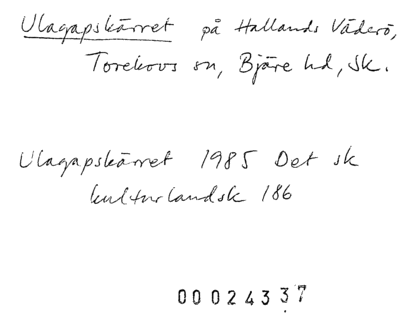 Ulagapskärret på Hallands Väderö,
Torekovs sn, Bjäre hd, Sk.
Ulagapskärret 1985 Det sk
kulturlandsk 186
00024337